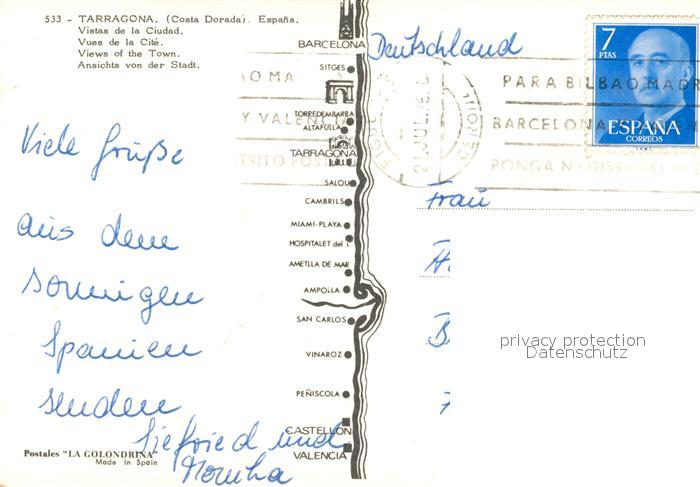 533 - TARRAGONA. (Costa Dorada). España.
Vistas de la Ciudad.
Vues de la Cité.
Views of the Town.
Ansichts von der Stadt.
Viele Grüße
aus dem
sonnigen
Spanien
senden
Siegfried und
Postales "LA GOLONDRINA"
Made in Spain
BARCELONA
SITGES
TORREDEMBARRA
ALTAFULLA
TARRAGONA
SALOU
CAMBRILS
MIAMI-PLAYA
HOSPITALET del I.
AMETLLA DE MAR
AMPOLLA
SAN CARLOS
VINAROZ
PEÑISCOLA
CASTELLON
VALENCIA
Deutschland
Frau
7
PTAS
ESPAÑA
CORREOS
PARA BILBAO MADR
BARCELONA
PONGA
Y VALENCIA
TRITO POSTAL
21 JUL
GERONA
privacy protection
Datenschutz